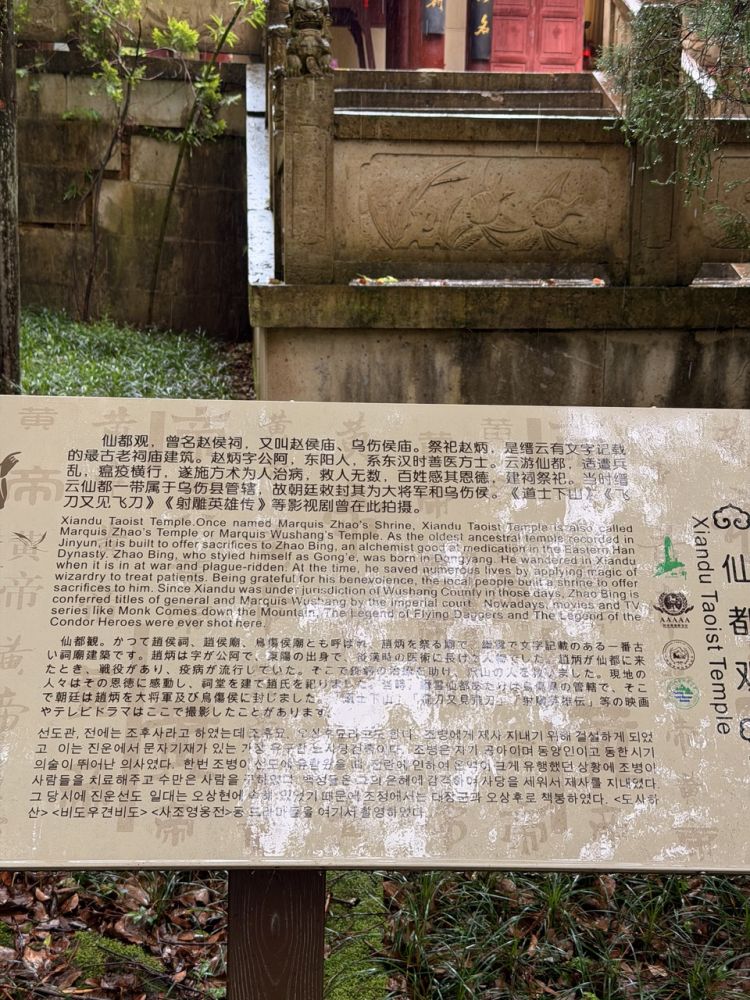 仙都观,曾名赵侯祠,又叫赵侯庙、乌伤侯庙。祭祀赵炳,是缙云有文字记载
的最古老祠庙建筑。赵炳字公阿,东阳人,系东汉时善医方士。云游仙都,适遭兵
乱,瘟疫横行,遂施方术为人治病,救人无数,百姓感其恩德,建祠祭祀。当时缙
云仙都一带属于乌伤县管辖,故朝廷敕封其为大将军和乌伤侯。《道士下山》《飞
刀又见飞刀》《射雕英雄传》等影视剧曾在此拍摄。
Xiandu Taoist Temple.Once named Marquis Zhao's Shrine, Xiandu Taoist Temple is also called
Marquis Zhao's Temple or Marquis Wushang's Temple. As the oldest ancestral temple recorded in
Jinyun, it is built to offer sacrifices to Zhao Bing, an alchemist good at medication in the Eastern Han
Dynasty. Zhao Bing, who styled himself as Gong'e, was born in Dongyang. He wandered in Xiandu
when it is in at war and plague-ridden. At the time, he saved numerous lives by applying magic of
wizardry to treat patients. Being grateful for his benevolence, the local people built a shrine to offer
sacrifices to him. Since Xiandu was under jurisdiction of Wushang County in those days, Zhao Bing is
conferred titles of general and Marquis Wushang by the imperial court. Nowadays, movies and TV
series like Monk Comes down the Mountain, The Legend of Flying Daggers and The Legend of the
Condor Heroes were ever shot here.
仙都観。かつて趙侯祠、趙侯廟、烏傷侯廟とも呼ばれ、趙炳を祭る廟で、縉雲で文字記載のある一番古
い祠廟建築です。趙炳は字が公阿で、東陽の出身で、後漢時の医術に長けた人物でした。趙炳が仙都に来
たとき、戦役があり、疫病が流行していた。そこで疫病の治療を助け、沢山の人を救いました。現地の
人々はその恩徳に感動し、祠堂を建て趙氏を祀りました。当時、縉雲仙都あたりは烏傷県の管轄で、そこ
で朝廷は趙炳を大将軍及び烏傷侯に封じました。「道士下山」、「飛刀又見飛刀」、「射雕英雄伝」等の映画
やテレビドラマはここで撮影したことがあります。
선도관, 전에는 조후사라고 하였는데 조후묘, 오상후묘라고도 한다. 조병에게 제사 지내기 위해 걸설하게 되었
고 이는 진운에서 문자기재가 있는 가장 유구한 노사당건축이다. 조병은 자가 공아이며 동양인이고 동한시기
의술이 뛰어난 의사였다. 한번 조병이 선도에 유람왔을 때, 전란에 인하여 온역이 크게 유행했던 상황에 조병이
사람들을 치료해주고 수만은 사람을 구하였다. 백성들은 그의 은혜에 감격하여 사당을 세워서 제사를 지내였다.
그 당시에 진운선도 일대는 오상현에 속해 있었기 때문에 조정에서는 대장군과 오상후로 책봉하였다. <도사하
산> <비도우견비도> <사조영웅전>등 드라마들을 여기서 촬영하였다.
仙都观
Xiandu Taoist Temple
AAAAA
黄
帝